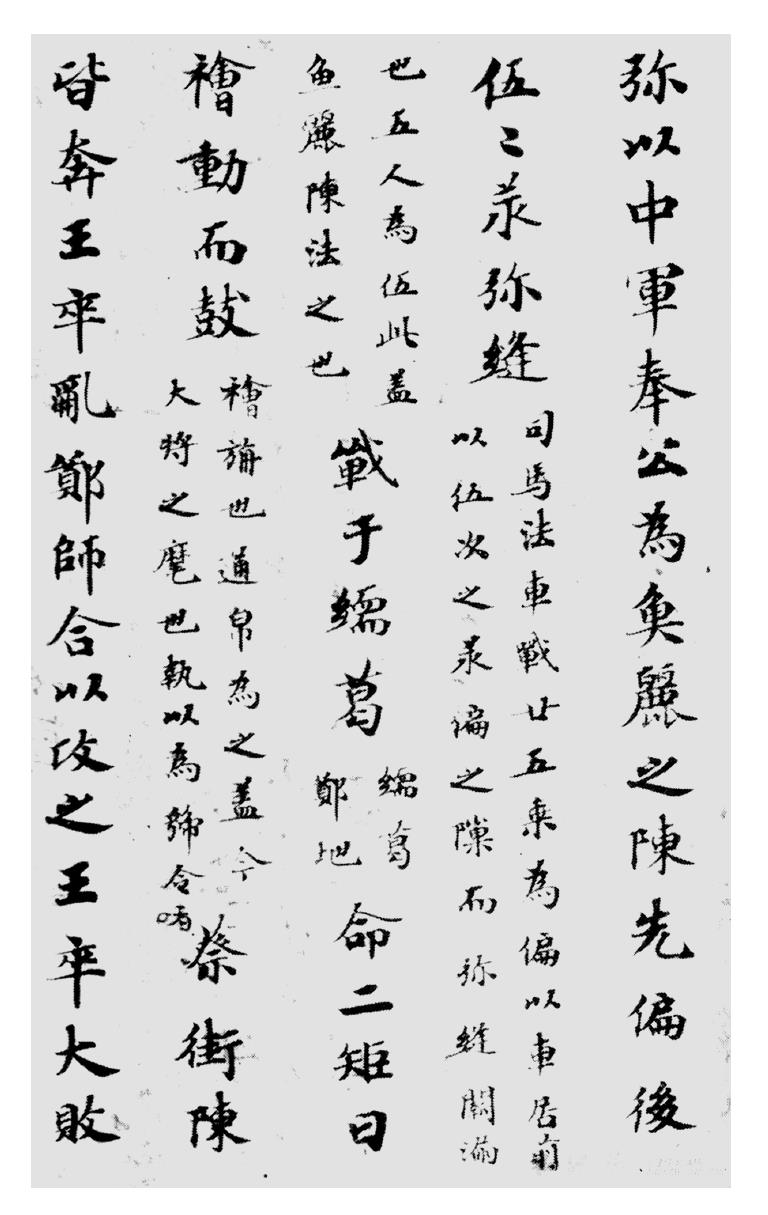 弥以中軍奉公為魚麗之陳先偏後
伍〻承弥縫
司馬法車戰廿五乘為偏以車居前
以伍次之承偏之隟而弥縫闕漏
也五人為伍此盖
魚麗陳法之也
戰于繻葛
繻葛
鄭地
命二矩曰
襘動而鼓
襘旃也通帛為之盖今
大将之麾也執以為號令
蔡衛陳
皆奔王卒亂鄭師合以攻之王卒大敗